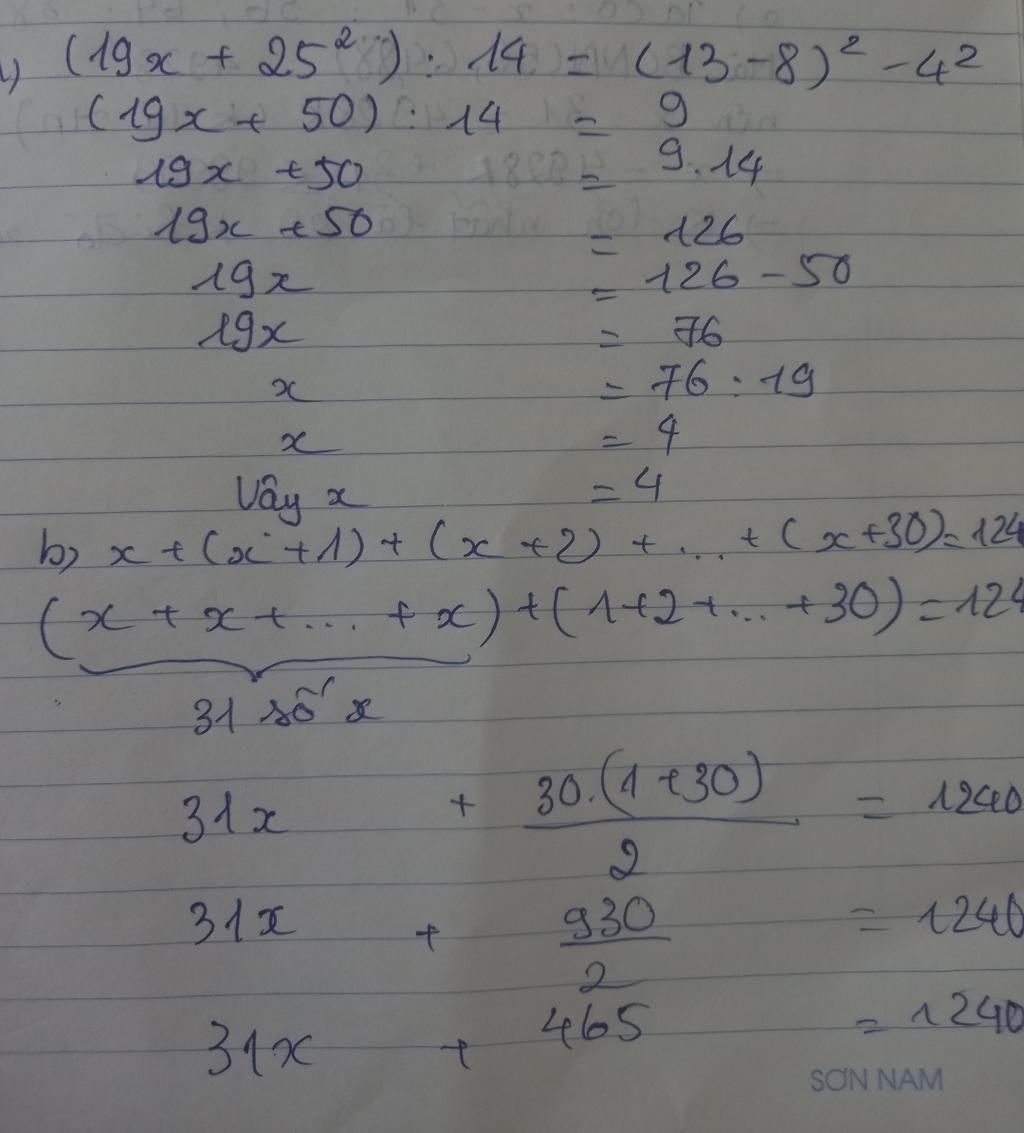 (19x + 25²) : 14 = (13 - 8)² - 4²
(19x + 50) : 14 = 9
19x + 50 = 9.14
19x + 50 = 126
19x = 126 - 50
19x = 76
x = 76 : 19
x = 4
Vậy x = 4
b) x + (x + 1) + (x + 2) + ... + (x + 30) = 124
(x + x + ... + x) + (1 + 2 + ... + 30) = 124
31 số x
31x + 30.(1 + 30) / 2 = 1240
31x + 930 / 2 = 1240
31x + 465 = 1240
SƠN NAM